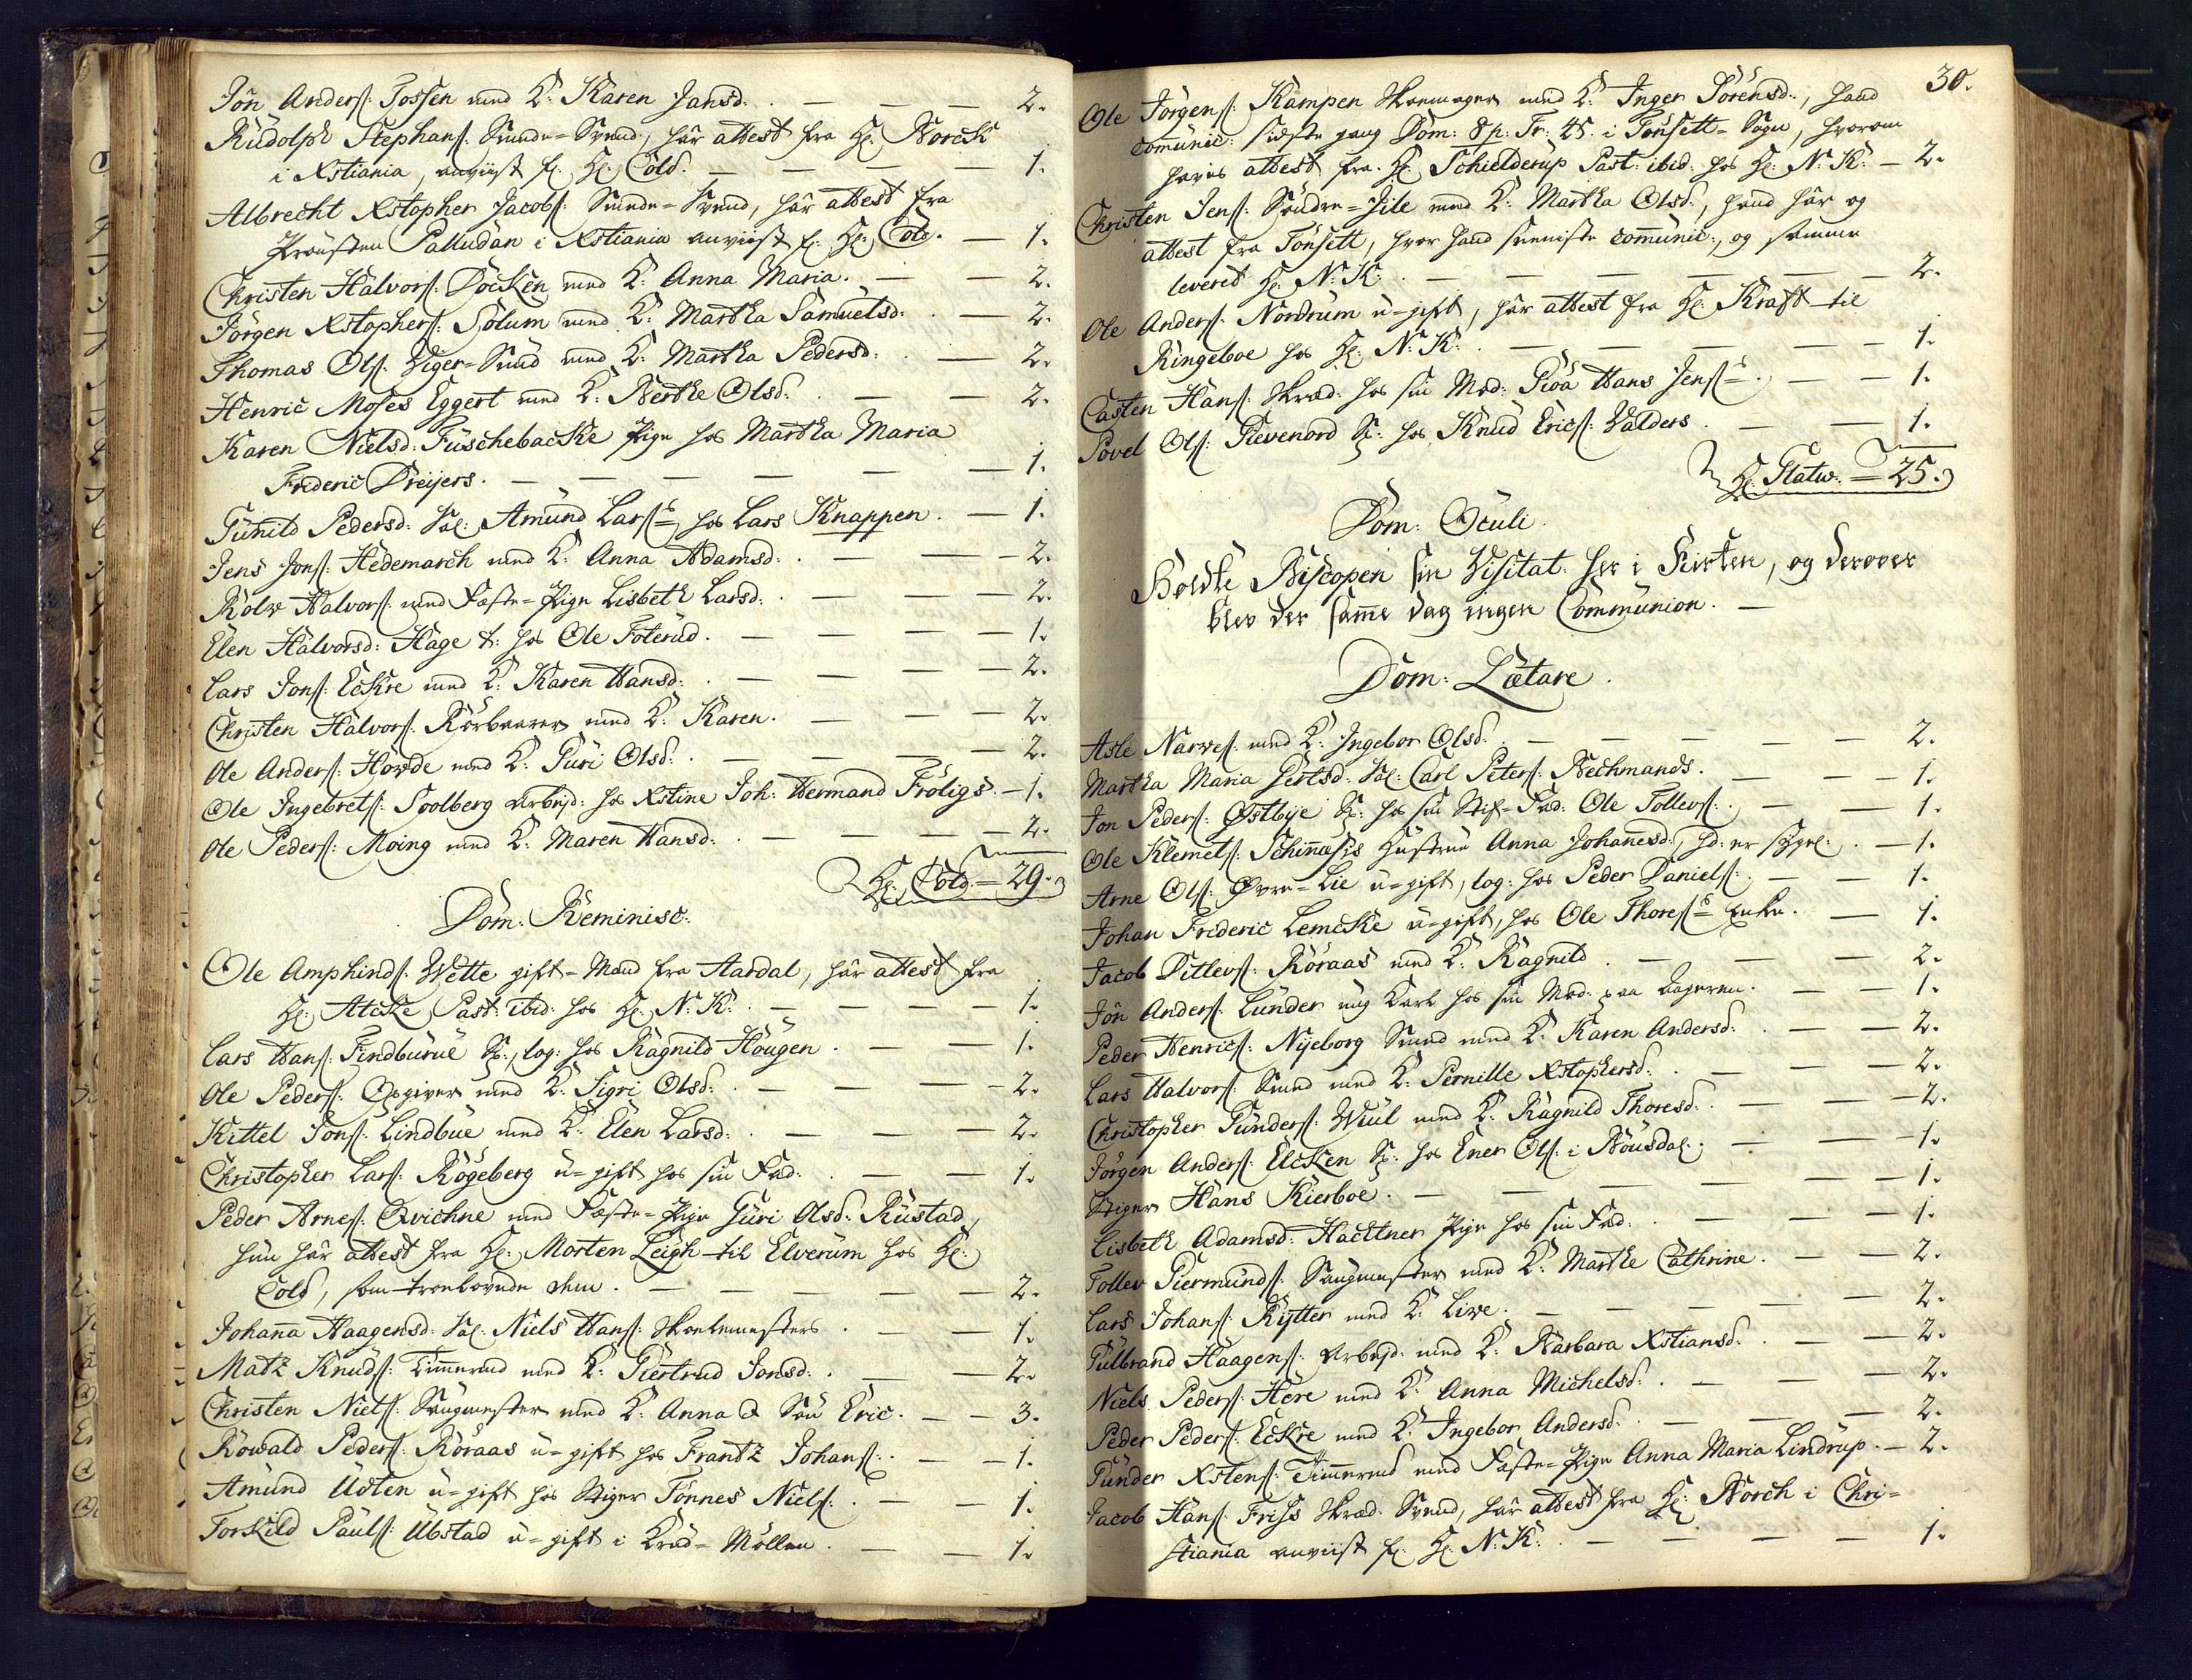 Jôn Anders: Fossen med K: Karen Jansd. . — — — 2.
Rudolph Stephans: Smede-Svend, har attest fra Hr: Norck
i Xstiania, anviist f. Hr: Cold. — — — 1.
Albrecht Xstopher Jacobs: Smede-Svend, har attest fra
Prousten Palludan i Xstiania anviist f. Hr: Cold. — 1.
Christen Halvors: Docken med K: Anna Maria. — — 2.
Jörgen Xstophers: Solum med K: Martha Samuelsd: . — 2.
Thomas Ols: Viger-Sund med K: Martha Pedersd: . — 2.
Henric Moses Eggert med K: Berthe Olsd: . — — 2.
Karen Nielsd: Fuschebacke Pige hos Martha Maria
Frederic Dreijers. — — — — — 1.
Gunild Pedersd: Sal: Amund Lars: hos Lars Knappen. — 1.
Jens Jons: Hedemarch med K: Anna Adamsd: . — — 2.
Rolw Halvors: med Fæste-Pige Lisbeth Larsd: . — — — 2.
Elen Halvorsd: Hage t: hos Ole Foterud. — — — 1.
Lars Jons: Eckre med K: Karen Hansd: . — — — 2.
Christen Halvors: Rörbaarer med K: Karen. — — — 2.
Ole Anders: Howde med K: Guri Olsd: . — — — 2.
Ole Ingebrets: Soolberg arbejd: hos Xstine Joh: Hermand Fröligs. — 1.
Ole Peders: Moing med K: Maren Hansd: . — — — 2.
Hr: Cold. = 29.
Dom: Reminisc:
Ole Amphinds: Wette gift-Mand fra Aardal, har attest fra
Hr: Atcke Past: ibid: hos Hr: N: K: . — — — 1.
Lars Hans: Findburue Sp:, log: hos Ragnild Höugen. — — 1.
Ole Peders: Opgiver med K: Sigri Olsd: . — — — 2.
Kittel Jons: Lindbue med K: Elen Larsd: . — — — 2.
Christopher Lars: Rögeberg u-gift hos sin Fad: . — — 1.
Peder Arnes: Qvichne med Fæste-Pige Guri Olsd: Rustad,
hun har attest fra Hr: Morten Leigh til Elverum hos Hr:
Cold, som troelovede dem. — — — — — 2.
Johanna Haagensd: Sal: Niels Hans: Skolemesters . — — 1.
Matz Knuds: Timmermd med K: Giertrud Jonsd: . — — 2.
Christen Niels: Saugmester med K: Anna & Sön Eric. — — 3.
Rowald Peders: Röraas u-gift hos Frantz Johans: . — — 1.
Amund Udten u-gift hos Stiger Tönnes Niels: . — — 1.
Torskild Pauls: Ubstad u-gift i Krud-Möllen. — — 1.
30.
Ole Jörgens: Kampen Skoemager med K: Inger Sörensd:, hand
comunic: sidste gang Dom: 8 p: Tr: 45. i Tönsett-Sogn, hvorom
haves attest fra Hr: Schielderup Past: ibid: hos Hr: N: K: — 2.
Christen Jens: Söndre-Jile med K: Martha Olsd:, hand har og
attest fra Tönsett, hvor hand seeniste comunic:, og samme
leveret Hr: N: K: . — — — — — 2.
Ole Anders: Nordrum u-gift, har attest fra Hr: Kraft til
Ringeboe hos Hr: N: K: . — — — — — 1.
Casten Hans: Skræd: hos sin Mod: Gioa Hans Jens: . — — 1.
Povel Ols: Gievenord Sp: hos Knud Erics: Valders . — — 1.
Hr: Glatw. = 25.
Dom: Oculi.
Holdte Biscopen sin Visitat: her i Kirken, og derover
blev der samme dag ingen Communion. —
Dom: Lætare.
Asle Narves: med K: Ingebor Olsd: . — — — — 2.
Martha Maria Gertsd: Sal: Carl Peters: Bechmands. — — 1.
Jon Peders: Östbye Sp: hos sin Stif-Fad: Ole Tollevs: . — — 1.
Ole Klemets: Schinnæsis Hustrue Anna Johannesd:, hd: er sygel: . — 1.
Arne Ols: Övre-Lie u-gift, log: hos Peder Daniels: . — — 1.
Johan Frederic Lemcke u-gift, hos Ole Thores: Enke. — 1.
Jacob Ditlevs: Röraas med K: Ragnild . — — — 2.
Jön Anders: Lunder ung Karl hos sin Mod: paa Bageren. — — 1.
Peder Henrics: Nyeborg Smed med K: Karen Andersd: . — — 2.
Lars Halvors: Smed med K: Pernille Xstophersd: . — — 2.
Christopher Gunders: Wiul med K: Ragnild Thoresd: . — — 2.
Jörgen Anders: Elcken Sp: hos Ener Ols: i Nousdal. — — 1.
Stiger Hans Kierboe. — — — — — 1.
Lisbeth Adamsd: Hachtner Pige hos sin Fad: . — — — 1.
Tollev Giermunds: Saugmester med K: Marthe Cathrine. — — 2.
Lars Johans: Rytter med K: Live. — — — — 2.
Gulbrand Haagens: Arbejd: med K: Barbara Xstiansd: . — — 2.
Niels Peders: Here med K: Anna Michelsd: . — — — 2.
Peder Peders: Eckre med K: Ingebor Andersd: . — — — 2.
Gunder Xstens: Timmermd med Fæste-Pige Anna Maria Lindrup. — 2.
Jacob Hans: Friss Skræd: Svend, har attest fra Hr: Norch i Chri-
stiania anviist f. Hr: N: K: . — — — — 1.